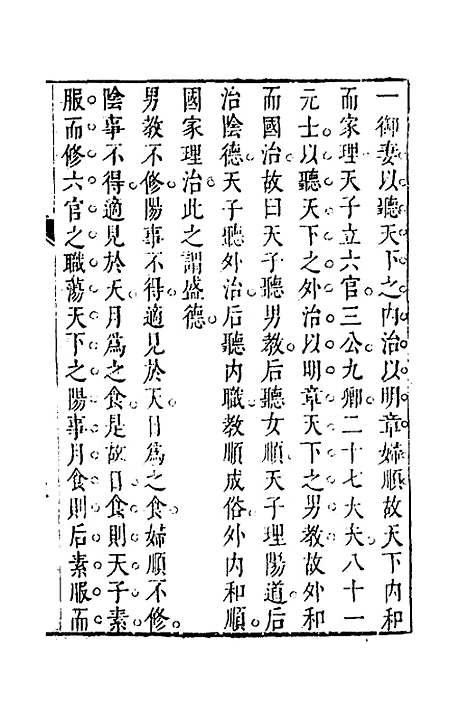 一御妻以聽天下之內治以明章婦順故天下內和
而家理天子立六官三公九卿二十七大夫八十一
元士以聽天下之外治以明章天下之男教故外和
而國治故曰天子聽男教后聽女順天子理陽道后
治陰德天子聽外治后聽內職教順成俗外內和順
國家理治此之謂盛德
男教不修陽事不得適見於天日爲之食婦順不修
陰事不得適見於天月爲之食是故日食則天子素
服而修六官之職蕩天下之陽事月食則后素服而